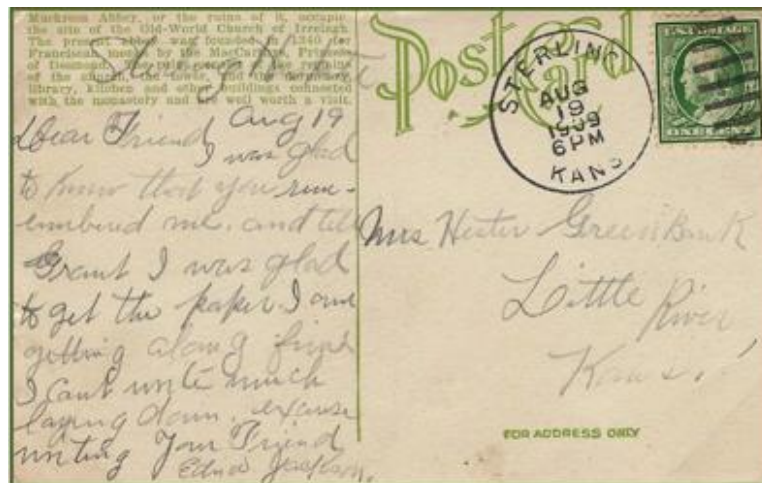 Muckross Abbey, or the ruins of it, occupies
the site of the Old-World Church of Irrelagh.
The present abbey was founded in 1340 for
Franciscan monks by the MacCarthys, Princes
of Desmond. The ruins consist of the remains
of the church, the tower, and the dormitory,
library, kitchen and other buildings connected
with the monastery and are well worth a visit.
Post Card
STERLING
AUG
19
1909
6 PM
KANS
U.S. POSTAGE
ONE CENT
Aug 19
Dear Friend
I was glad
to know that you rem-
embered me. and tell
Grant I was glad
to get the paper. I am
getting along fine
I Cant write much
laying down. excuse
writing Your Friend
Edna Jackson.
Mrs Hester Greenbank
Little River
Kans.
FOR ADDRESS ONLY